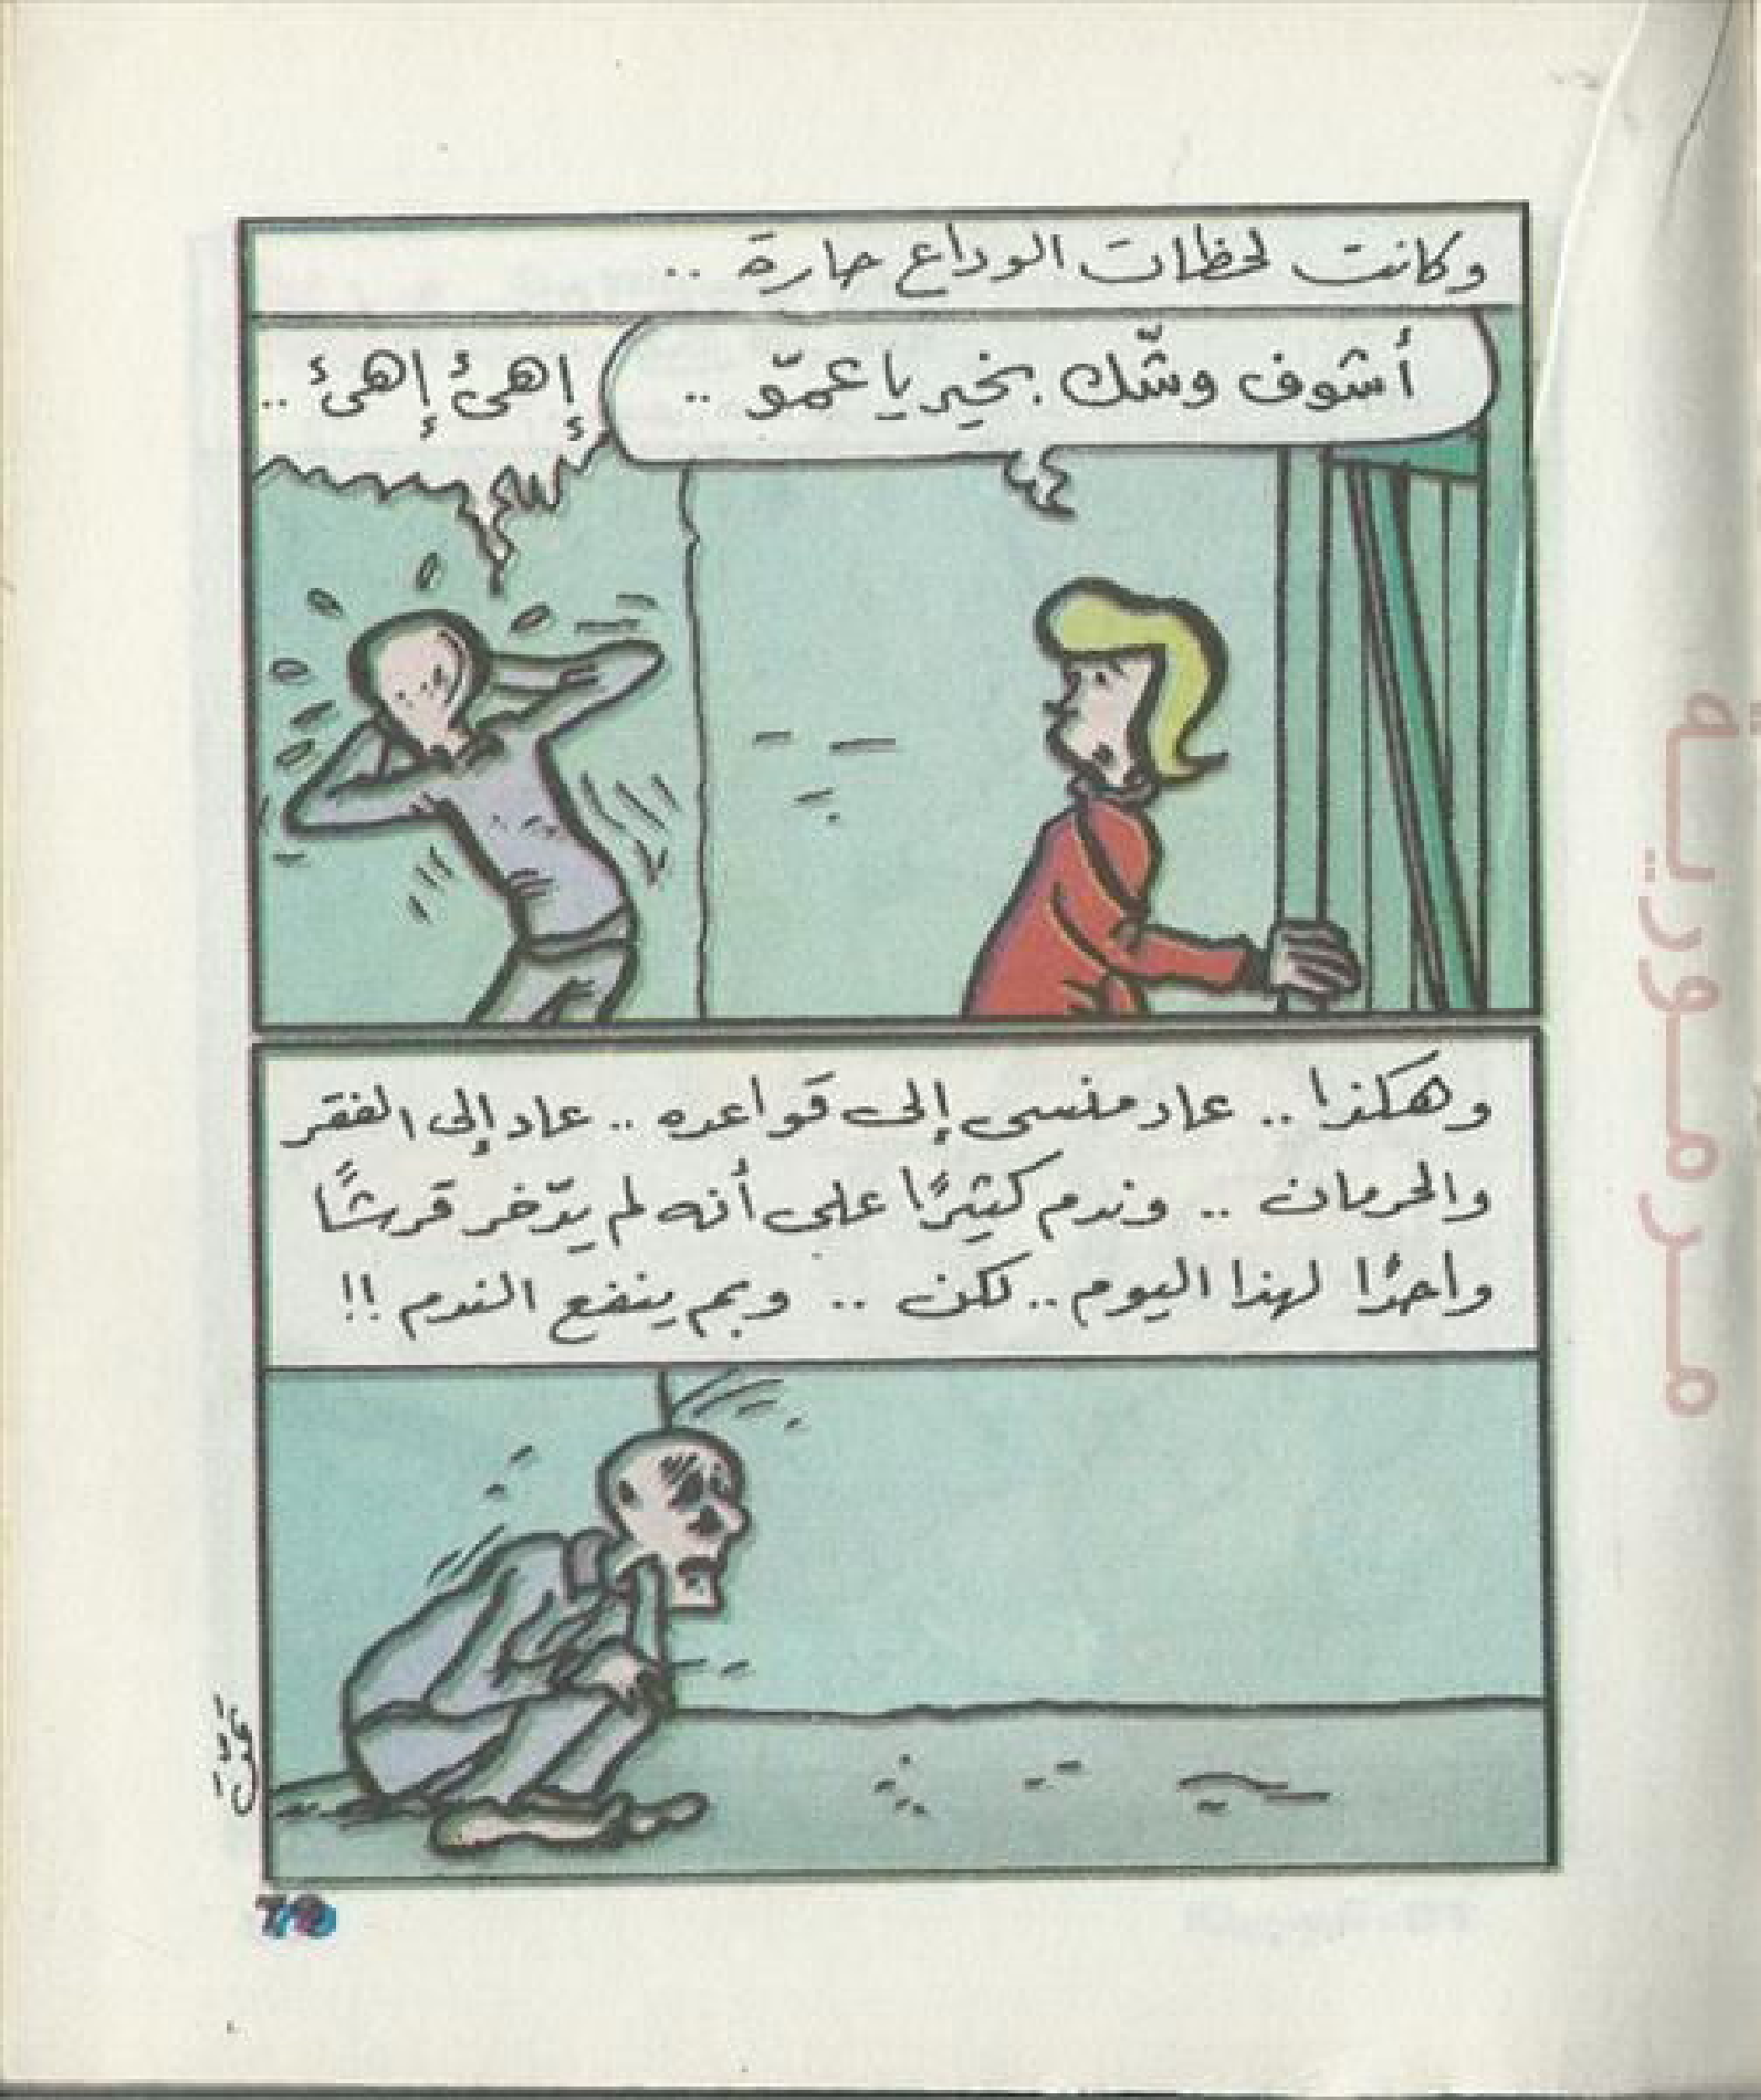 وكانت لحظات الوداع حارة ..
أشوف وشّك بخير يا عمّو ..
إهئ إهئ ..
وهكذا .. عاد منسى إلى قواعده .. عاد إلى الفقر
والحرمان .. وندم كثيرًا على أنه لم يدّخر قرشًا
واحدًا لهذا اليوم .. لكن .. وبم ينفع الندم !!
مرمورية